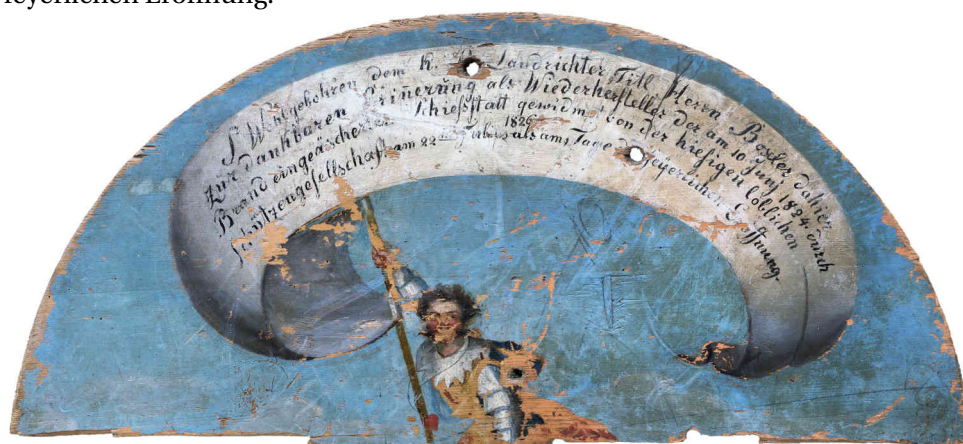 feyerlichen Eröffnung.
S Wohlgebohren dem K. Landrichter Titl Herrn Boxler dahier
zur dankbaren Erinerung als Wiederhersteller der am 10 Junj 1824. durch
Brand eingeäscherten Schießstatt gewidmet von der hiesigen löblichen
1826
Schützengesellschaft am 22 als am Tage der feyerlichen Eröffnung.